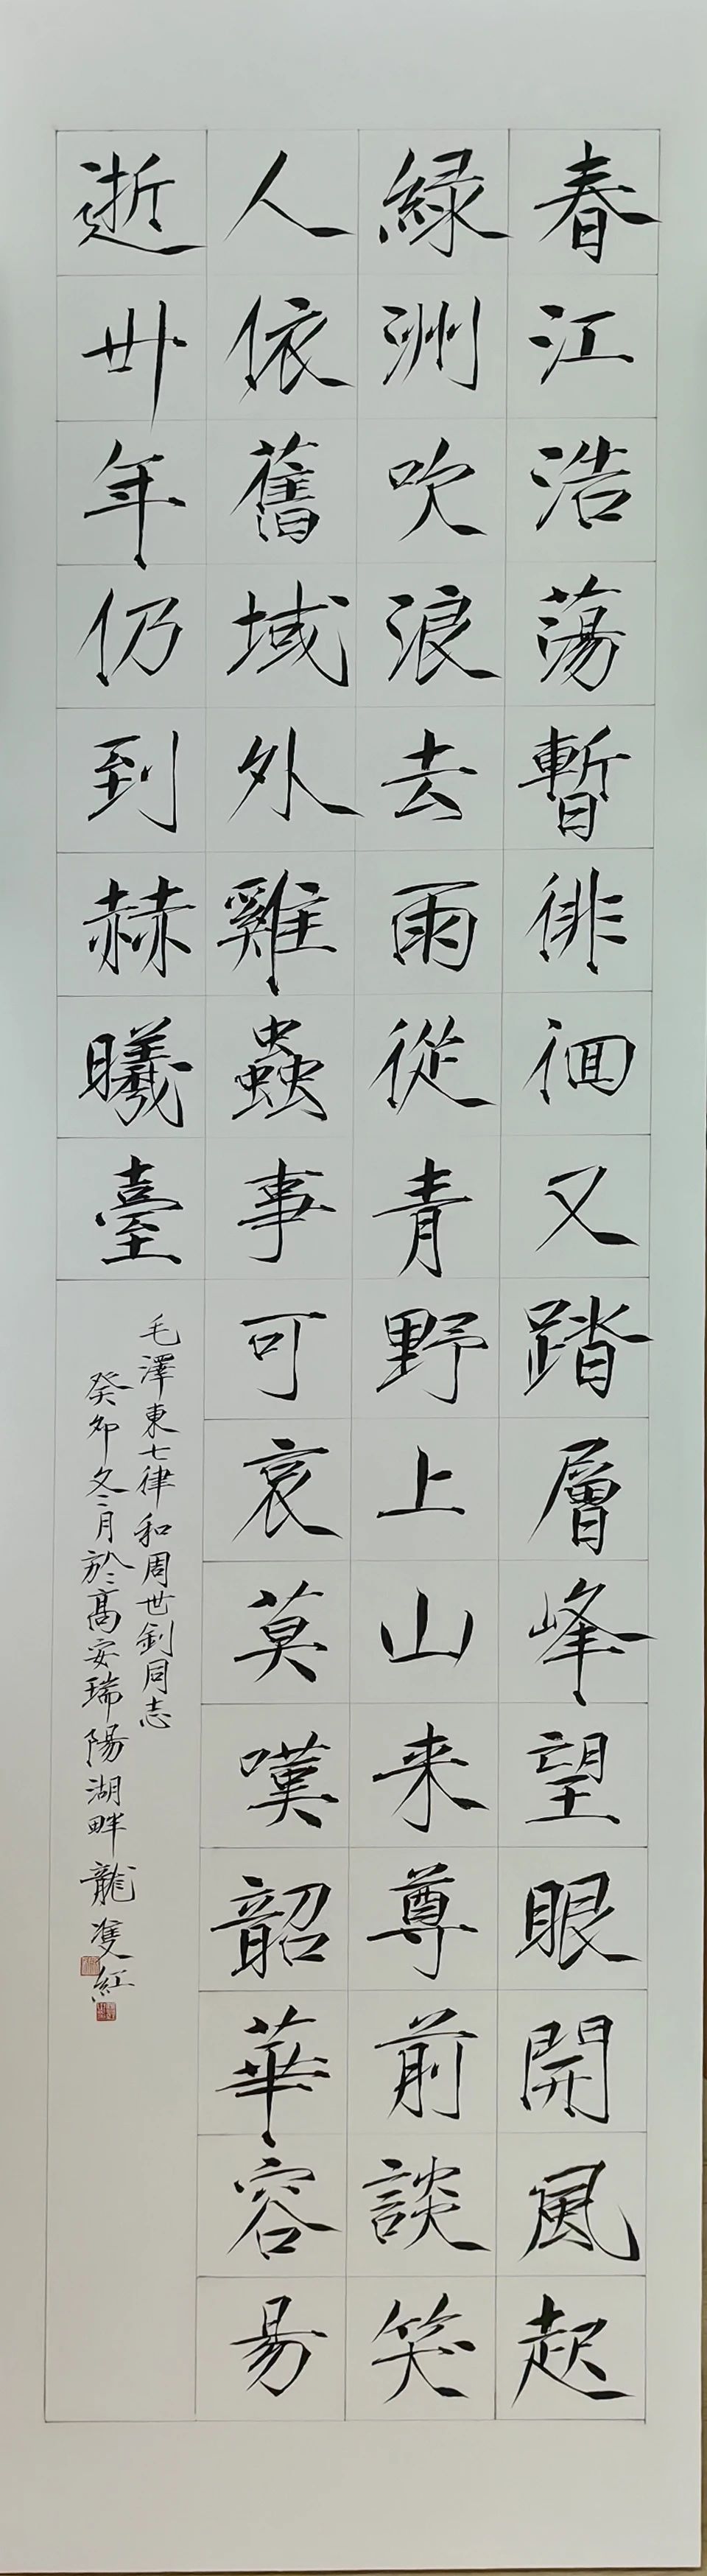 春江浩蕩暫徘徊又踏層峰望眼開風起
緑洲吹浪去雨從青野上山来尊前談笑
人依舊域外雞蟲事可哀莫嘆韶華容易
逝卅年仍到赫曦臺
毛澤東七律和周世釗同志
癸卯冬月於高安瑞陽湖畔龍雙紅